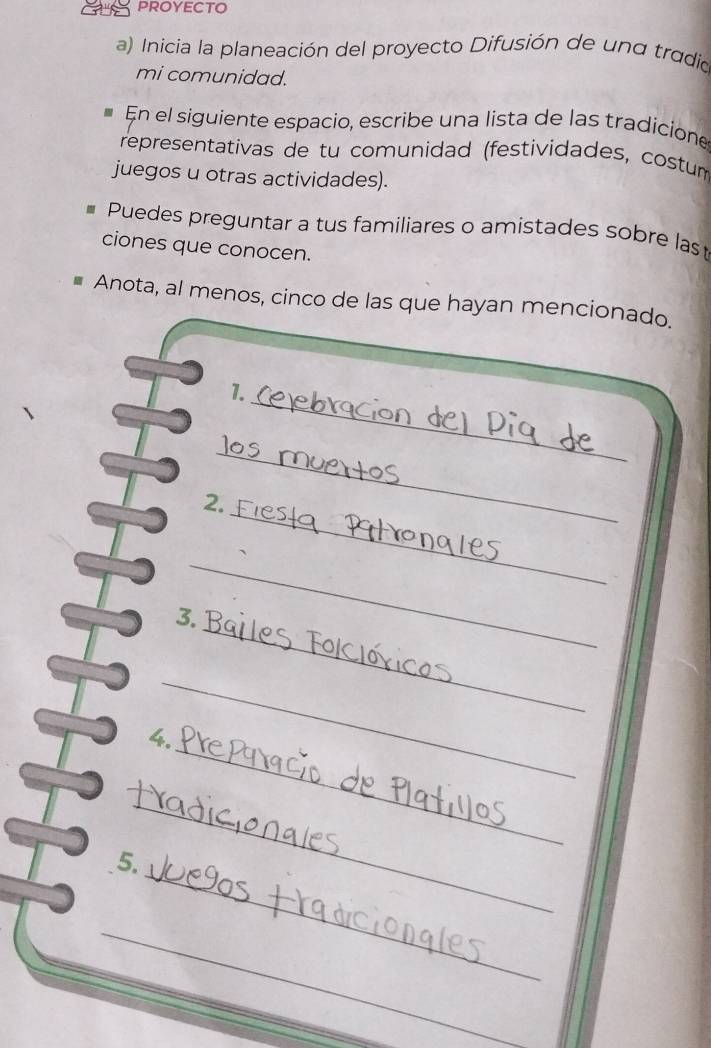 PROYECTO
a) Inicia la planeación del proyecto Difusión de una tradic
mi comunidad.
En el siguiente espacio, escribe una lista de las tradicione
representativas de tu comunidad (festividades, costum
juegos u otras actividades).
Puedes preguntar a tus familiares o amistades sobre las t
ciones que conocen.
Anota, al menos, cinco de las que hayan mencionado.
1. Celebracion del Dia de
los muertos
2. Fiesta patronales
3. Bailes Folclóricos
4. Preparacio de Platillos
tradicionales
5. Juegos tradicionales